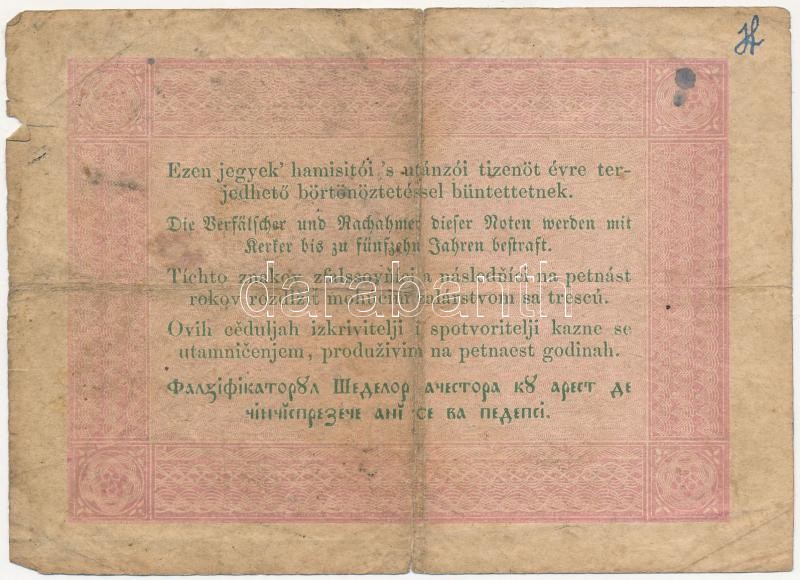 Ezen jegyek' hamisitói 's utánzói tizenöt évre ter-
jedhető börtönöztetéssel büntettetnek.
Die Verfälscher und Nachahmer dieser Noten werden mit
Kerker bis zu fünfzehn Jahren bestraft.
Tíchto znakov a následňíci na petnást
rokov sa trescú.
Ovih cěduljah izkrivitelji i spotvoritelji kazne se
utamničenjem, produživim na petnaest godinah.
Фалꙁіфікаторꙋл Шеделор ачестора кꙋ арест де
чінчіспреꙁече ані се ва педепсі.
darabanth